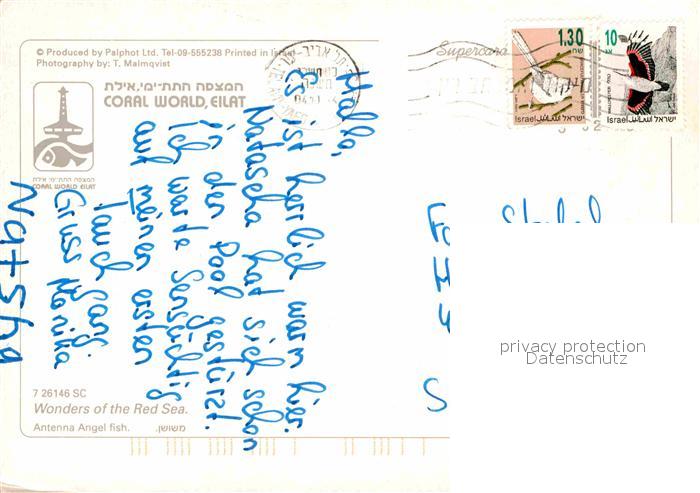 © Produced by Palphot Ltd. Tel-09-555238 Printed in Israel
Photography by: T. Malmqvist
המצפה התת-ימי, אילת
CORAL WORLD, EILAT
המצפה התת-ימי אילת
CORAL WORLD EILAT
Supercard
1.30
Israel ישראל
10
Israel ישראל
Hallo,
Es ist herrlich warm hier.
Natascha hat sich schon
in den Pool gestürzt.
Ich warte Sensüchtig
auf meinen ersten
Tauchgang.
Gruss Monika
Natasha
privacy protection
Datenschutz
7 26146 SC
Wonders of the Red Sea.
Antenna Angel fish.